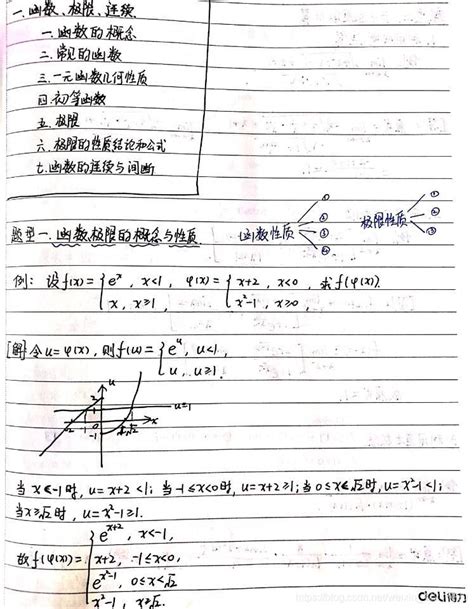 一.函数、极限、连续
一.函数的概念
二.常见的函数
三.一元函数几何性质
四.初等函数
五.极限
六.极限的性质结论和公式
七.函数的连续与间断
题型一.函数极限的概念与性质. 函数性质 ① ② ③ ④ 极限性质 ① ② ③
例: 设f(x)= { e^x, x<1, x, x≥1, φ(x)= { x+2, x<0, x²-1, x≥0, 求f(φ(x)).
[解]令u=φ(x), 则f(u)= { e^u, u<1, u, u≥1.
u
2
1
u=1
-2 -1 0 1 √2 x
-1
当x<-1时, u=x+2<1; 当-1≤x<0时, u=x+2≥1; 当0≤x<√2时, u=x²-1<1;
当x≥√2时, u=x²-1≥1.
故f(φ(x))= { e^(x+2), x<-1,
x+2, -1≤x<0,
e^(x²-1), 0≤x<√2
x²-1, x≥√2.
deli得力